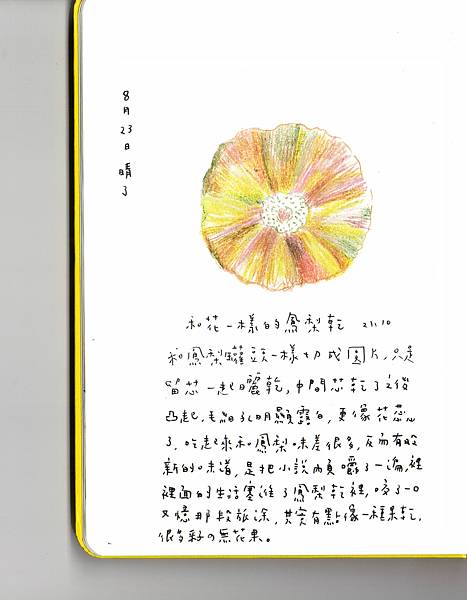 8月23日晴了
和花一樣的鳳梨乾 21:10
和鳳梨罐頭一樣切成圓片,只是
留芯一起日曬乾,中間芯乾了之後
凸起,毛細孔明顯露白,更像花蕊
了.吃起來和鳳梨味差很多,反而有故
新的味道,是把小說內頁嚼了一遍,裡
裡面的生活塞進了鳳梨乾裡,咬了一口
又憶那段旅途,其實有點像一種果乾,
很多籽的無花果。